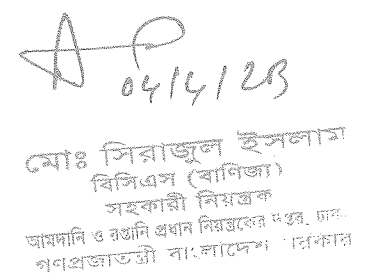 04/4/23
মোঃ সিরাজুল ইসলাম
বিসিএস (বাণিজ্য)
সহকারী নিয়ন্ত্রক
আমদানি ও রপ্তানি প্রধান নিয়ন্ত্রকের দপ্তর, ঢাকা
গণপ্রজাতন্ত্রী বাংলাদেশ সরকার